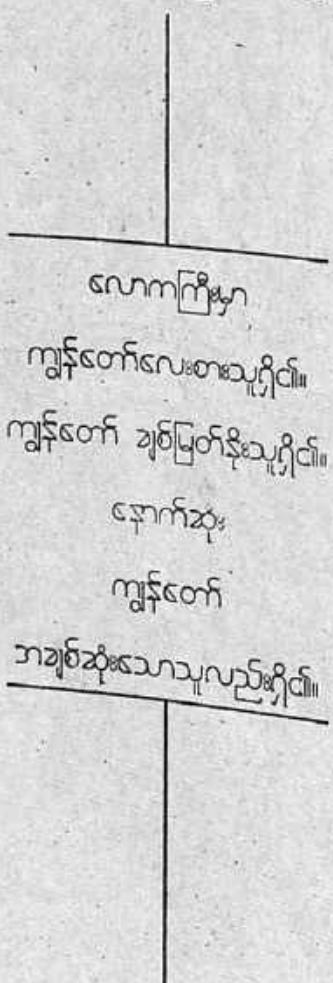 လောကကြီးမှာ
ကျွန်တော်လေးစားသူရှိ၏။
ကျွန်တော် ချစ်မြတ်နိုးသူရှိ၏။
နောက်ဆုံး
ကျွန်တော်
အချစ်ဆုံးသောသူလည်းရှိ၏။